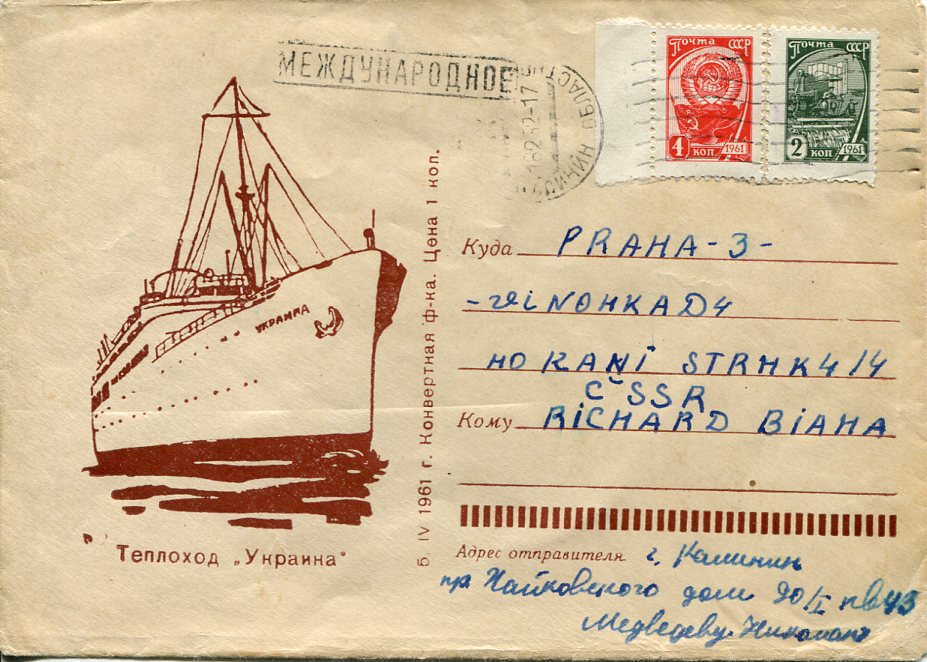 МЕЖДУНАРОДНОЕ
Почта СССР
4 коп 1961
Почта СССР
2 коп 1961
УКРАИНА
Теплоход „Украина"
Б IV 1961 г. Конвертная ф-ка. Цена 1 коп.
Куда PRAHA-3-
-ViNOHRAD4
HORANÍ STRMK4/4
ČSSR
Кому RiCHARD BiAHA
Адрес отправителя г. Калинин
пр Чайковского дом 90/I кв 43
Медведеву Николаю